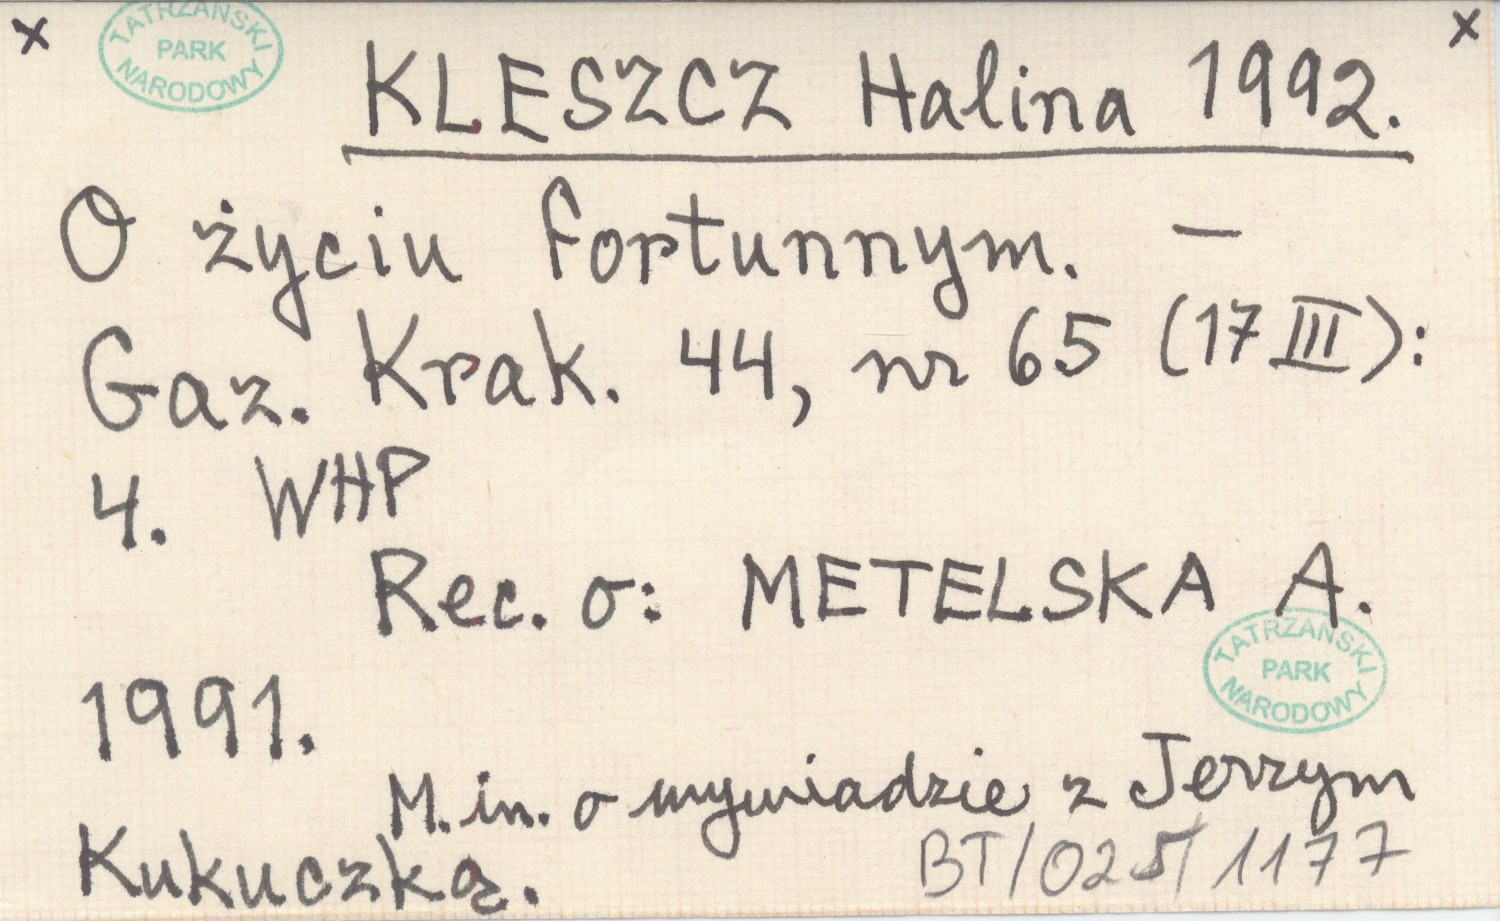 x x
TATRZAŃSKI PARK NARODOWY
KLESZCZ Halina 1992.
O życiu fortunnym. –
Gaz. Krak. 44, nr 65 (17 III):
4. WHP
Rec. o: METELSKA A.
TATRZAŃSKI PARK NARODOWY
1991.
M.in. o wywiadzie z Jerzym
Kukuczką.
BT/025/1177